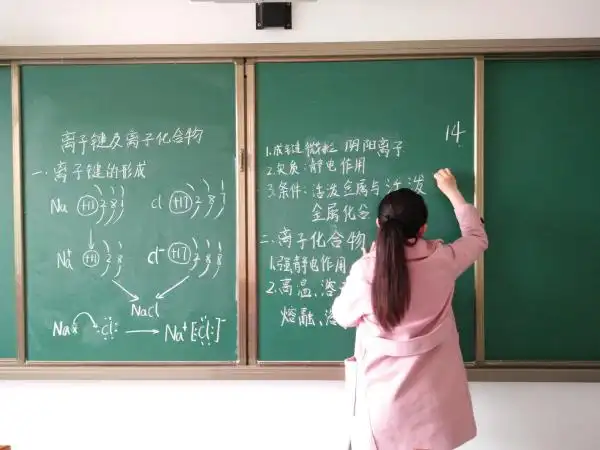 离子键及离子化合物
一.离子键的形成
Na +11 2 8 1 Cl +17 2 8 7
Na⁺ +11 2 8 Cl⁻ +17 2 8 8
NaCl
Na× ·Cl: → Na⁺[:Cl:]⁻
14
1.成键微粒 阴阳离子
2.实质:静电作用
3.条件:活泼金属与活泼
金属化合
二.离子化合物
1.强静电作用
2.高温、溶
熔融、溶